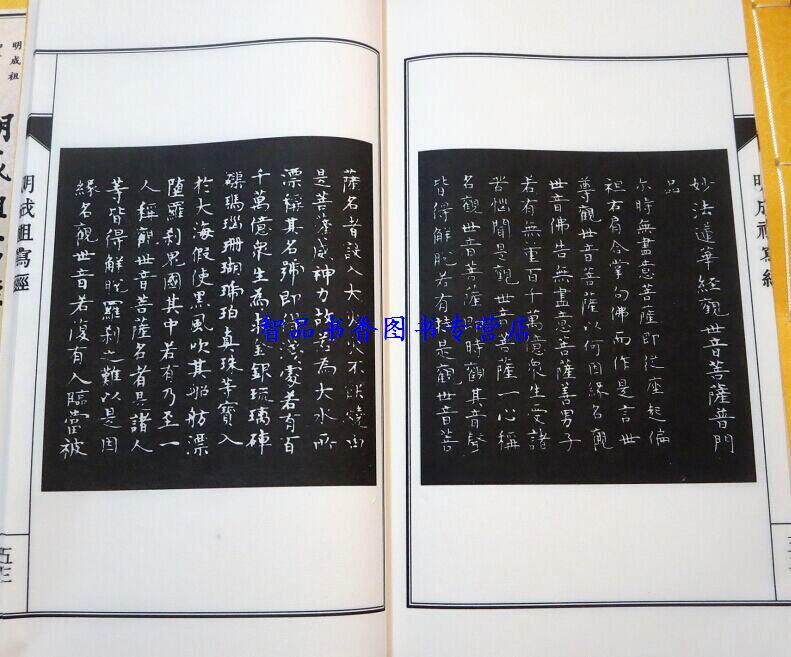 妙法蓮華經觀世音菩薩普門
品
尒時無盡意菩薩即從座起偏
袒右肩合掌向佛而作是言世
尊觀世音菩薩以何因緣名觀
世音佛告無盡意菩薩善男子
若有無量百千萬億衆生受諸
苦惱聞是觀世音菩薩一心稱
名觀世音菩薩即時觀其音聲
皆得解脫若有持是觀世音菩
薩名者設入大火火不能燒由
是菩薩威神力故若為大水所
漂稱其名號即得淺處若有百
千萬億衆生為求金銀琉璃硨
磲瑪瑙珊瑚琥珀真珠等寶入
於大海假使黑風吹其船舫漂
墮羅刹鬼國其中若有乃至一
人稱觀世音菩薩名者是諸人
等皆得解脫羅刹之難以是因
緣名觀世音若復有人臨當被
明成祖寫經
明成祖寫經
明成祖
智品书香图书专营店